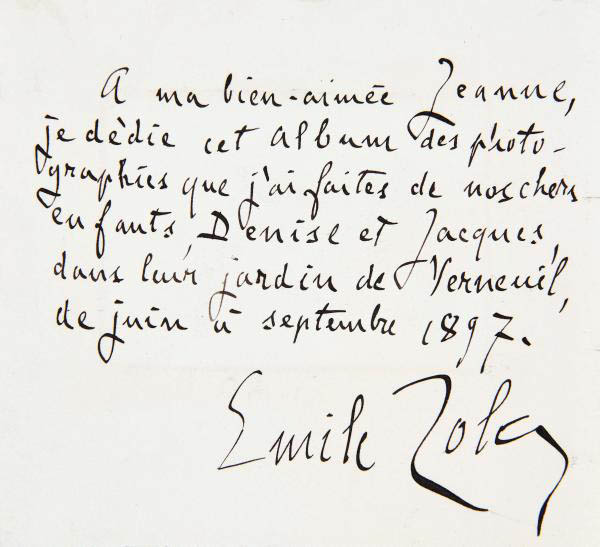 A ma bien-aimée Jeanne,
je dédie cet album des photo-
graphies que j'ai faites de nos chers
enfants, Denise et Jacques,
dans leur jardin de Verneuil,
de juin à septembre 1897.
Emile Zola